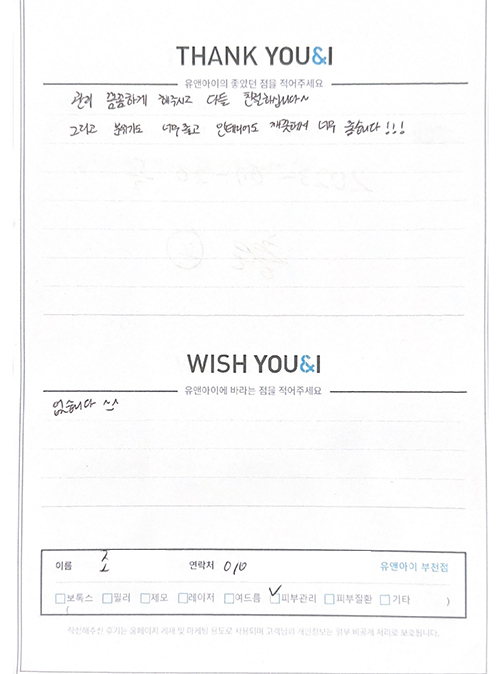 THANK YOU&I
유앤아이의 좋았던 점을 적어주세요
관리 꼼꼼하게 해주시고 다들 친절하십니다~
그리고 분위기도 너무 좋고 인테리어도 깨끗해서 너무 좋습니다!!!
WISH YOU&I
유앤아이에 바라는 점을 적어주세요
없습니다 ^^
이름 연락처 010 유앤아이 부천점
보톡스 필러 제모 레이저 여드름 ✓피부관리 피부질환 기타 ( )
작성해주신 후기는 홈페이지 게재 및 마케팅 용도로 사용되며 고객님의 개인정보는 일부 비공개 처리로 보호됩니다.